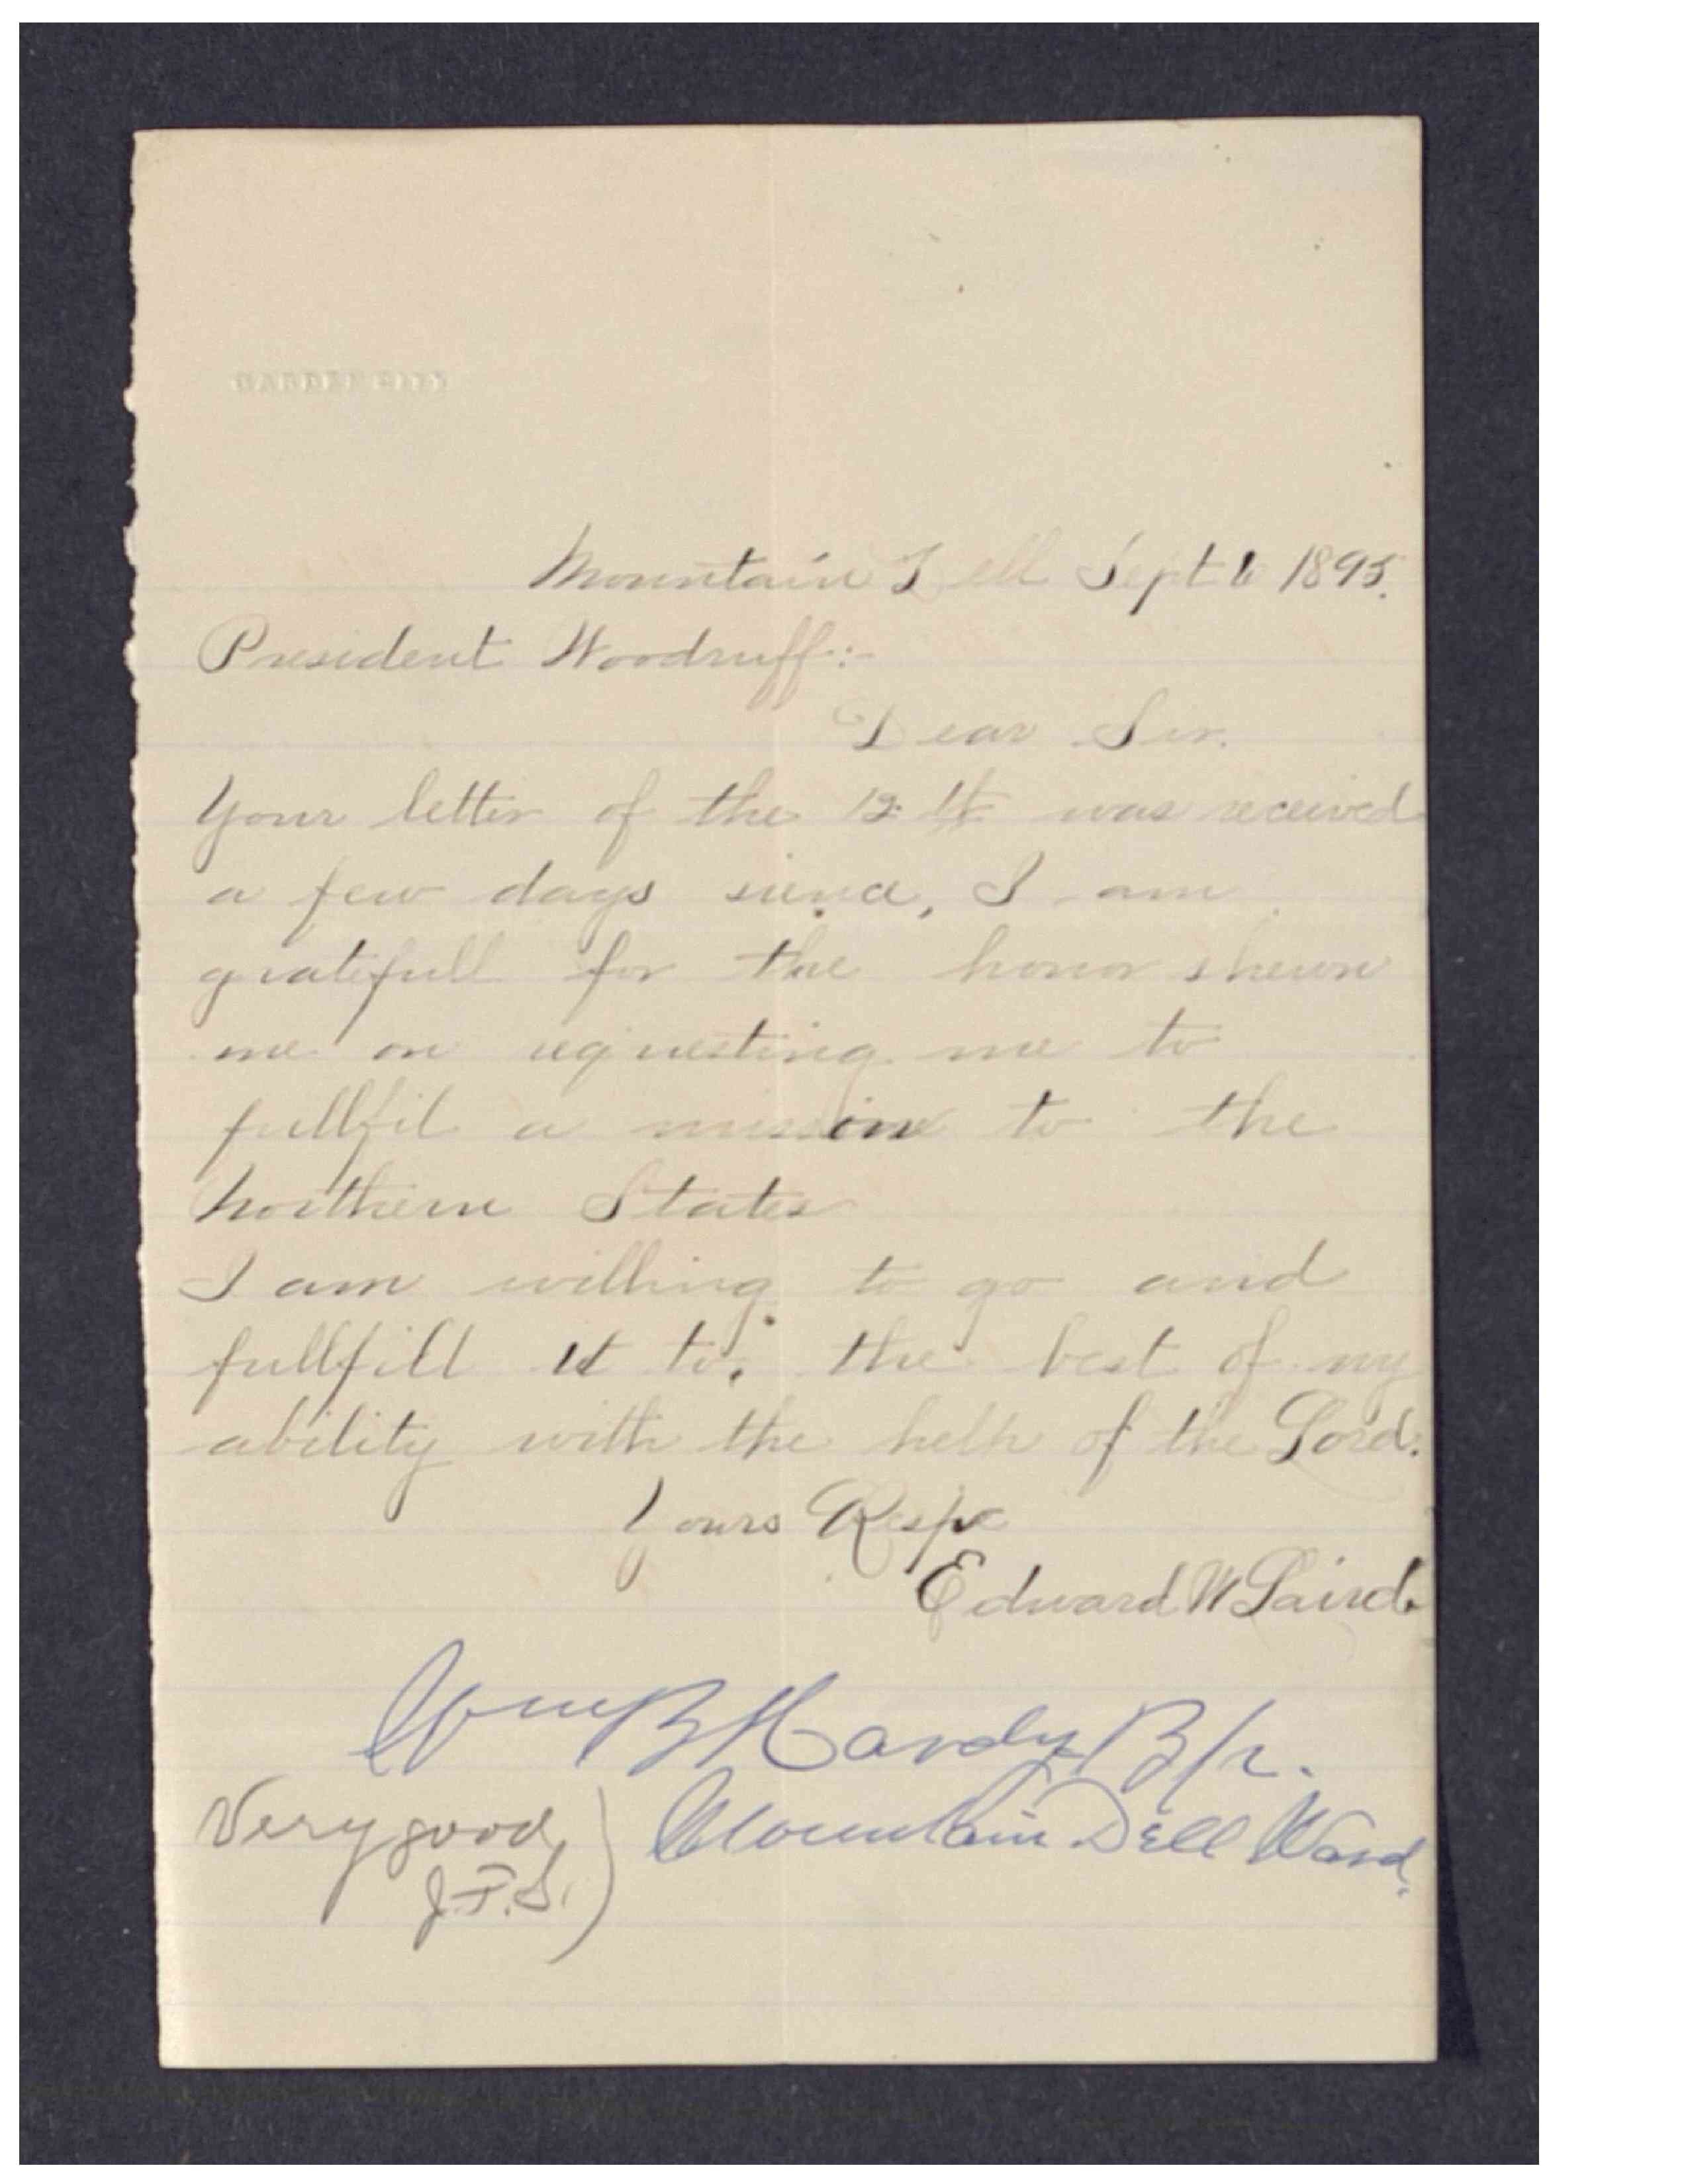 GARDEN CITY
Mountain Dell Sept 6 1895.
President Woodruff:-
Dear Sir.
Your letter of the 12th was received
a few days since, I am
gratefull for the honor shewn
me on requesting me to
fullfil a mission to the
Northern States
I am willing to go and
fullfill it to the best of my
ability with the help of the Lord.
Yours Resp
Edward W Laird.
Wm B Hardy Bp.
Mountain Dell Ward.
Very good
J.F.S.